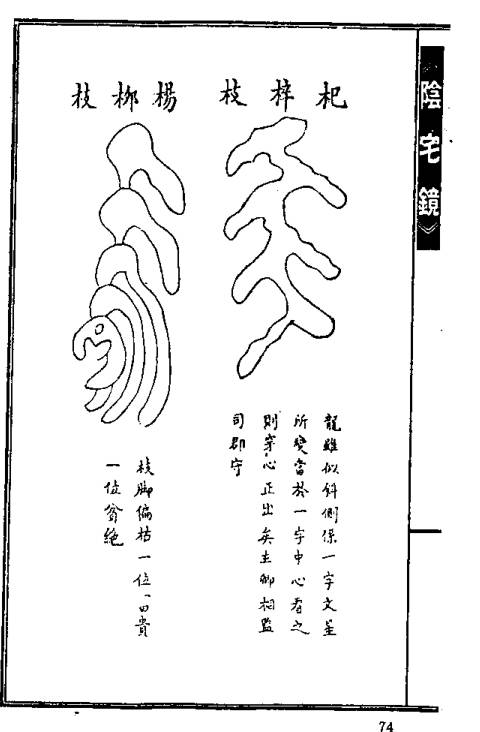 《陰宅鏡》
杞梓枝
龍雖似斜側係一字文星
所變當於一字中心看之
則穿心正出矣主卿相監
司郡守
楊柳枝
枝脚偏枯一位出貴
一位貧絶
74